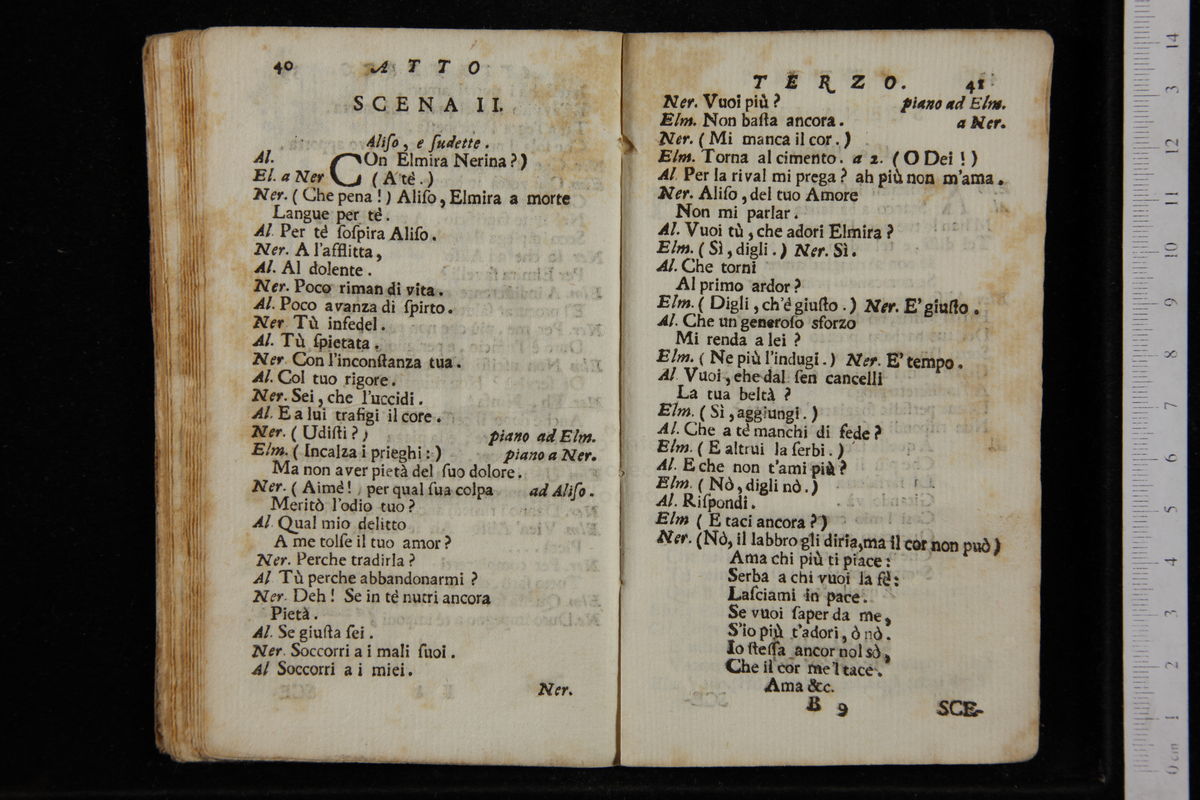 40 ATTO
SCENA II.
Aliſo, e ſudette.
Al. COn Elmira Nerina?)
El. a Ner (A tè.)
Ner. (Che pena!) Aliſo, Elmira a morte
Langue per tè.
Al. Per tè ſoſpira Aliſo.
Ner. A l'afflitta,
Al. Al dolente.
Ner. Poco riman di vita.
Al. Poco avanza di ſpirto.
Ner Tù infedel.
Al. Tù ſpietata.
Ner Con l'inconſtanza tua.
Al. Col tuo rigore.
Ner. Sei, che l'uccidi.
Al. E a lui trafigi il core.
Ner. (Udiſti?) piano ad Elm.
Elm. (Incalza i prieghi:) piano a Ner.
Ma non aver pietà del ſuo dolore.
Ner. (Aimè! per qual ſua colpa ad Aliſo.
Meritò l'odio tuo?
Al Qual mio delitto
A me tolſe il tuo amor?
Ner. Perche tradirla?
Al Tù perche abbandonarmi?
Ner. Deh! Se in tè nutri ancora
Pietà.
Al. Se giuſta ſei.
Ner. Soccorri a i mali ſuoi.
Al Soccorri a i miei.
Ner.
TERZO. 41
Ner. Vuoi più? piano ad Elm.
Elm. Non baſta ancora. a Ner.
Ner. (Mi manca il cor.)
Elm. Torna al cimento. a 2. (O Dei!)
Al Per la rival mi prega? ah più non m'ama.
Ner. Aliſo, del tuo Amore
Non mi parlar.
Al. Vuoi tù, che adori Elmira?
Elm. (Sì, digli.) Ner. Sì.
Al. Che torni
Al primo ardor?
Elm. (Digli, ch'è giuſto.) Ner. E' giuſto.
Al. Che un generoſo sforzo
Mi renda a lei?
Elm. (Ne più l'indugi.) Ner. E' tempo.
Al Vuoi, ehe dal ſen cancelli
La tua beltà?
Elm. (Sì, aggiungi.)
Al. Che a tè manchi di fede?
Elm. (E altrui la ſerbi.)
Al. E che non t'ami più?
Elm. (Nò, digli nò.)
Al. Riſpondi.
Elm (E taci ancora?)
Ner. (Nò, il labbro gli diria, ma il cor non può)
Ama chi più ti piace:
Serba a chi vuoi la fè:
Laſciami in pace.
Se vuoi ſaper da me,
S'io più t'adori, ò nò.
Io ſteſſa ancor nol sò,
Che il cor me'l tace.
Ama &c.
B 9 SCE-